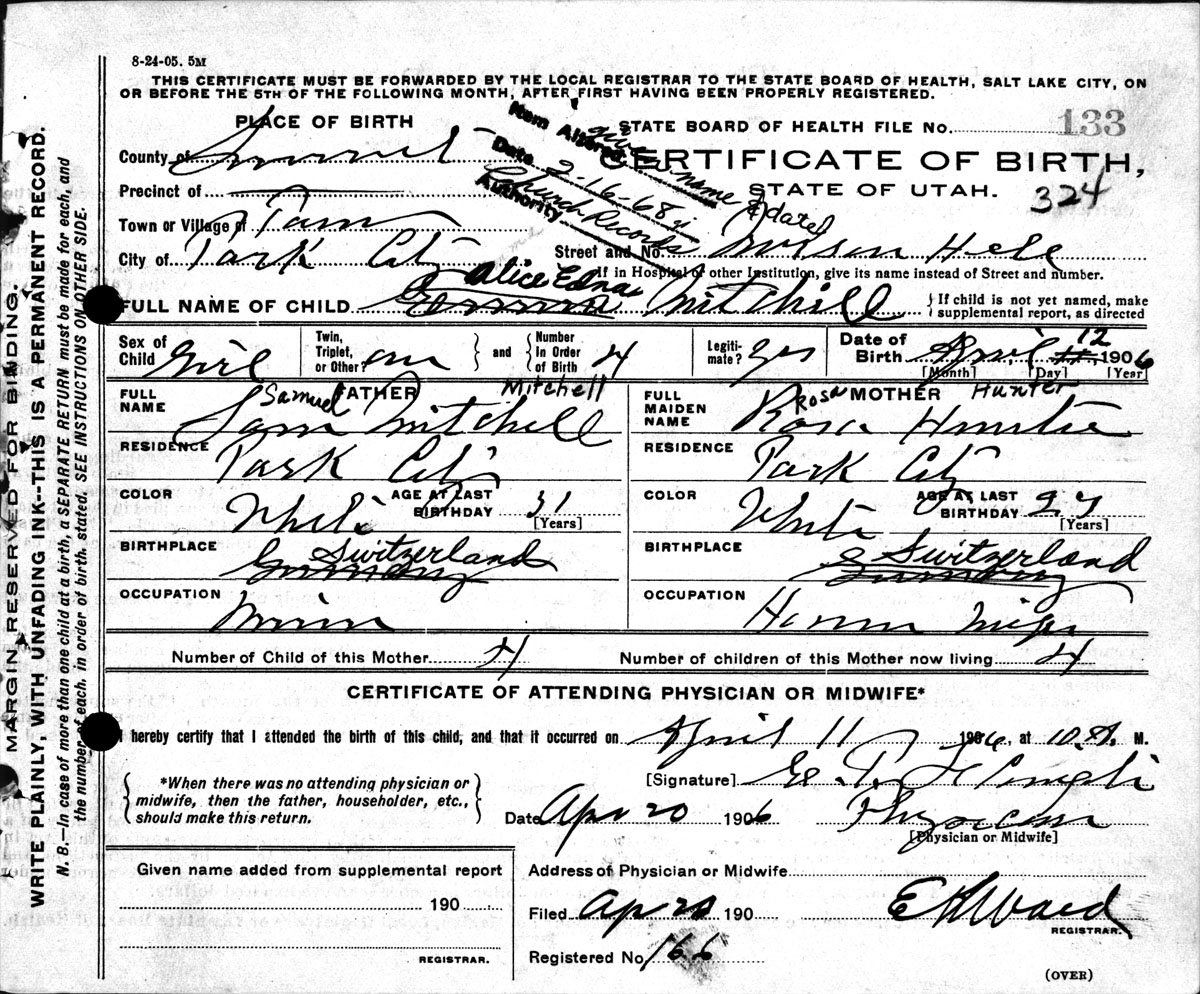 8-24-05. 5M
THIS CERTIFICATE MUST BE FORWARDED BY THE LOCAL REGISTRAR TO THE STATE BOARD OF HEALTH, SALT LAKE CITY, ON
OR BEFORE THE 5TH OF THE FOLLOWING MONTH, AFTER FIRST HAVING BEEN PROPERLY REGISTERED.
PLACE OF BIRTH
STATE BOARD OF HEALTH FILE No. 133
CERTIFICATE OF BIRTH,
STATE OF UTAH.
324
Item Altered given name & date
Date 2-16-68
Authority Church Records
County of Summit
Precinct of
Town or Village of
City of Park City
Street and No.
If in Hospital or other Institution, give its name instead of Street and number.
Alice Edna
FULL NAME OF CHILD Mitchell
If child is not yet named, make
supplemental report, as directed
Sex of Child Girl
Twin, Triplet, or Other?
and
Number In Order of Birth 4
Legiti-mate? Yes
Date of Birth April 11 12 1906
[Month] [Day] [Year]
FATHER
FULL NAME
Samuel Mitchell
Sam Mitchell
RESIDENCE
Park City
COLOR
White
AGE AT LAST BIRTHDAY 31
[Years]
BIRTHPLACE
Switzerland
Germany
OCCUPATION
Miner
MOTHER
FULL MAIDEN NAME
Rosa Hunter
Rosa Hunter
RESIDENCE
Park City
COLOR
White
AGE AT LAST BIRTHDAY 27
[Years]
BIRTHPLACE
Switzerland
Germany
OCCUPATION
House Wife
Number of Child of this Mother 4
Number of children of this Mother now living 4
CERTIFICATE OF ATTENDING PHYSICIAN OR MIDWIFE*
I hereby certify that I attended the birth of this child, and that it occurred on April 11 1906, at 10. A. M.
*When there was no attending physician or
midwife, then the father, householder, etc.,
should make this return.
[Signature]
Date Apr 20 1906 Physician
[Physician or Midwife]
Given name added from supplemental report
190
REGISTRAR.
Address of Physician or Midwife
Filed Apr 190 E H Ward
REGISTRAR.
Registered No. 166
(OVER)
MARGIN RESERVED FOR BINDING.
WRITE PLAINLY, WITH UNFADING INK--THIS IS A PERMANENT RECORD.
N. B.—In case of more than one child at a birth, a SEPARATE RETURN must be made for each, and
the number of each, in order of birth, stated. SEE INSTRUCTIONS ON OTHER SIDE.